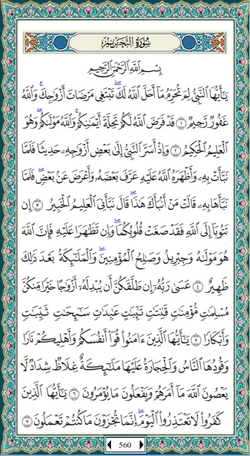 سُورَةُ التَّحْرِيمِ
بِسْمِ اللَّهِ الرَّحْمَٰنِ الرَّحِيمِ
يَا أَيُّهَا النَّبِيُّ لِمَ تُحَرِّمُ مَا أَحَلَّ اللَّهُ لَكَ تَبْتَغِي مَرْضَاتَ أَزْوَاجِكَ وَاللَّهُ
غَفُورٌ رَّحِيمٌ ١ قَدْ فَرَضَ اللَّهُ لَكُمْ تَحِلَّةَ أَيْمَانِكُمْ وَاللَّهُ مَوْلَاكُمْ وَهُوَ
الْعَلِيمُ الْحَكِيمُ ٢ وَإِذْ أَسَرَّ النَّبِيُّ إِلَىٰ بَعْضِ أَزْوَاجِهِ حَدِيثًا فَلَمَّا
نَبَّأَتْ بِهِ وَأَظْهَرَهُ اللَّهُ عَلَيْهِ عَرَّفَ بَعْضَهُ وَأَعْرَضَ عَن بَعْضٍ فَلَمَّا
نَبَّأَهَا بِهِ قَالَتْ مَنْ أَنبَأَكَ هَٰذَا قَالَ نَبَّأَنِيَ الْعَلِيمُ الْخَبِيرُ ٣ إِن
تَتُوبَا إِلَى اللَّهِ فَقَدْ صَغَتْ قُلُوبُكُمَا وَإِن تَظَاهَرَا عَلَيْهِ فَإِنَّ اللَّهَ
هُوَ مَوْلَاهُ وَجِبْرِيلُ وَصَالِحُ الْمُؤْمِنِينَ وَالْمَلَائِكَةُ بَعْدَ ذَٰلِكَ
ظَهِيرٌ ٤ عَسَىٰ رَبُّهُ إِن طَلَّقَكُنَّ أَن يُبْدِلَهُ أَزْوَاجًا خَيْرًا مِّنكُنَّ
مُسْلِمَاتٍ مُّؤْمِنَاتٍ قَانِتَاتٍ تَائِبَاتٍ عَابِدَاتٍ سَائِحَاتٍ ثَيِّبَاتٍ
وَأَبْكَارًا ٥ يَا أَيُّهَا الَّذِينَ آمَنُوا قُوا أَنفُسَكُمْ وَأَهْلِيكُمْ نَارًا
وَقُودُهَا النَّاسُ وَالْحِجَارَةُ عَلَيْهَا مَلَائِكَةٌ غِلَاظٌ شِدَادٌ لَّا
يَعْصُونَ اللَّهَ مَا أَمَرَهُمْ وَيَفْعَلُونَ مَا يُؤْمَرُونَ ٦ يَا أَيُّهَا الَّذِينَ
كَفَرُوا لَا تَعْتَذِرُوا الْيَوْمَ إِنَّمَا تُجْزَوْنَ مَا كُنتُمْ تَعْمَلُونَ ٧
560